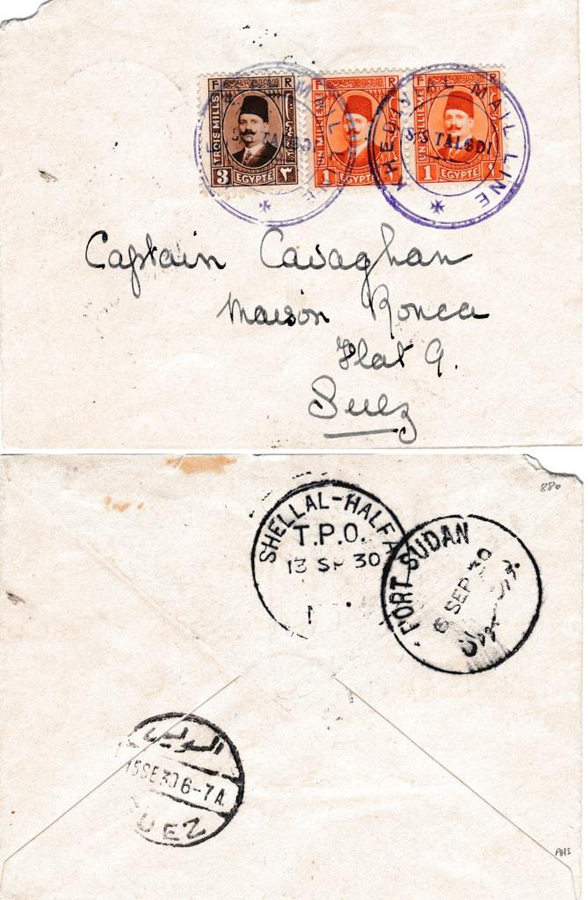 F R
TROIS MILLS
3 ٣
F R
UN MILLIEME
1
EGYPTE
F R
UN MILLIEME
1 ١
EGYPTE
KHEDIVIAL MAIL LINE
S/S TALODI
Captain Cavaghan
Maison Ronca
Flat 9.
Suez
880
SHELLAL-HALFA
T.P.O.
13 SP 30
1
PORT SUDAN
SEP 30
السويس
15 SE 30 6-7 A.
UEZ
AHS